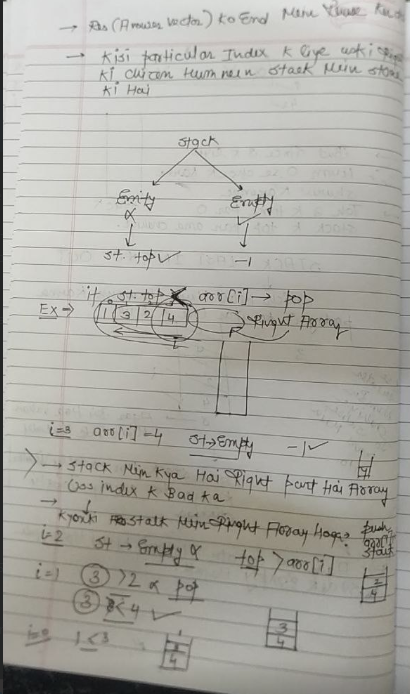 → Res (Answer vector) ko End Mein
→ Kisi particular Index k liye uski
ki chizen Humnein staek Mein store
ki Hai
stack
Emity Empty
α ✓
st. top ✓ -1
if st. top X arr[i] → pop
EX → 1 3 2 4 Right Array
i=3 arr[i] = 4 st → Empty -1 ✓
4
→ stack Mein Kya Hai Right part Hai Array
Uss index k Bad ka
→ Kyonki stalk Mein Right Array Hoga. push
i=2 st → Empty α top > arr[i]
2
4
i=1 3 > 2 α pop
3 < 4 ✓
3
4
i=0 1 < 3
1
3
4